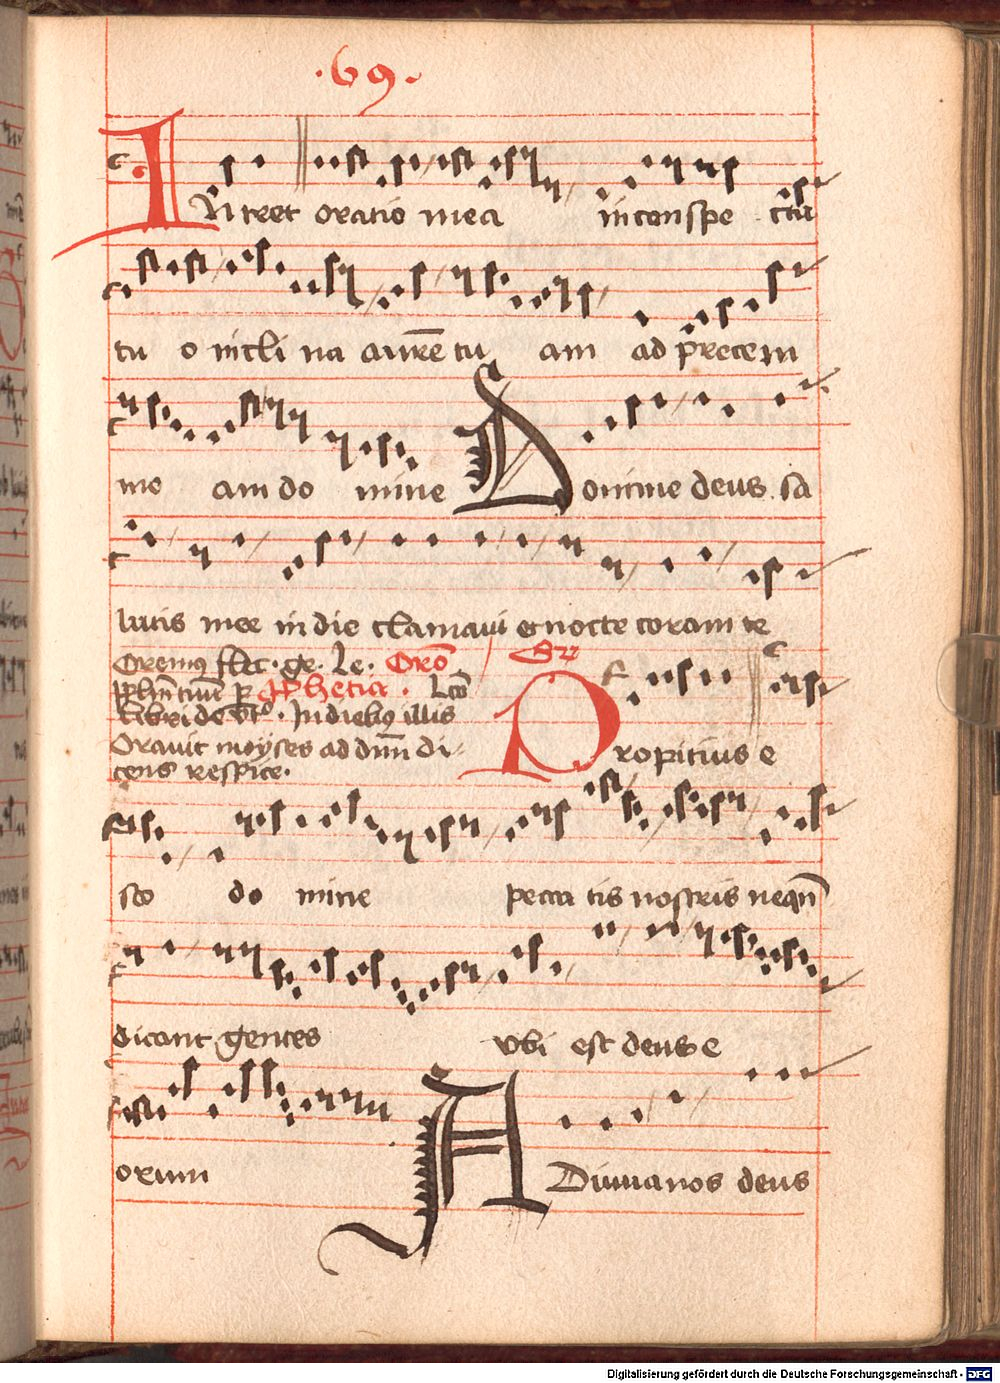 ·69·
INtret oratio mea in conspe ctu
tu o incli na aurē tu am ad precem
me am do mine Domine deus sa
lutis mee in die clamaui et nocte coram te
Oremus flec. ge. Le. Orō
Libri de. In diebus illis
Orauit moyses ad dnm di-
cens respice.
Gr
Propitius e
sto do mine pecca tis nostris neqn̄
dicant gentes vbi est deus e
orum ADiuua nos deus
Digitalisierung gefördert durch die Deutsche Forschungsgemeinschaft - DFG